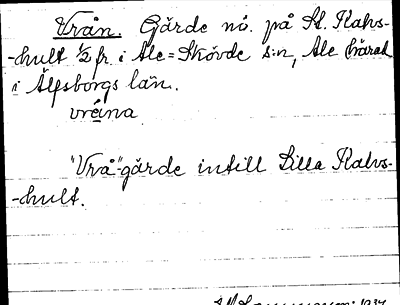 Vrån. Gärde nö. på St. Kalvs-
-hult ½ fr. i Ale=Skövde s:n, Ale härad
i Älfsborgs län.
vråna
"Vrå"gärde intill Lilla Kalvs-
-hult.
1934